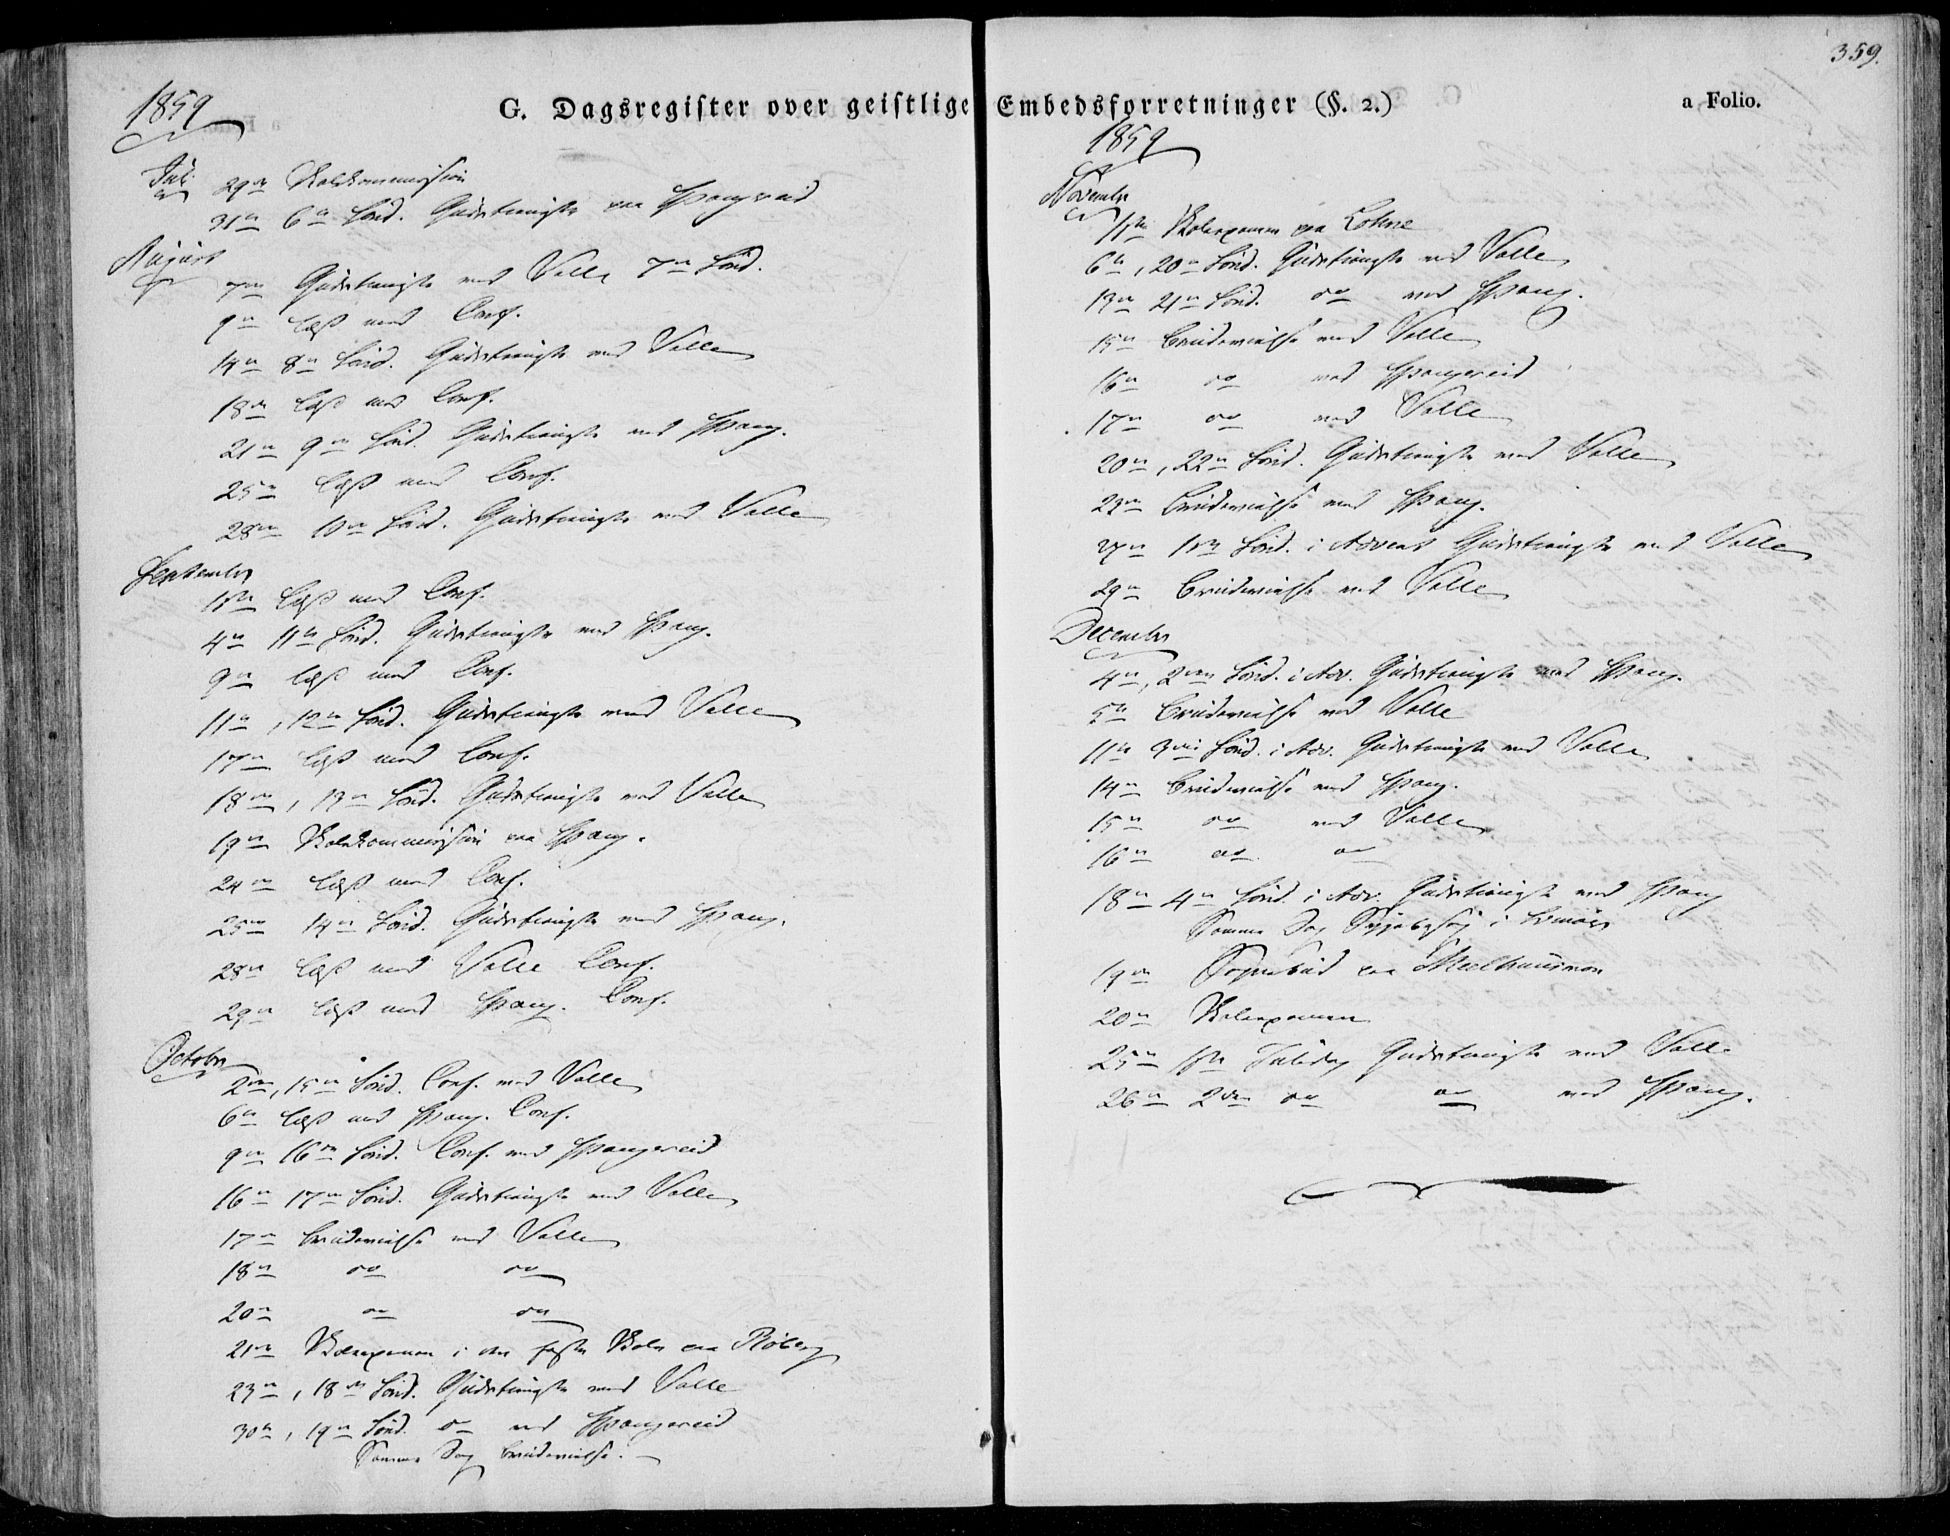 359.
G. Dagsregister over geistlige Embedsforretninger (§. 2.)
a Folio.
1859
Juli 29de Skolekommission
31te 6te Sönd. Gudstieneste paa Spangereid
August
7de Gudstieneste ved Valle 7de Sönd.
9de læst med Conf.
14de 8de Sönd. Gudstieneste ved Valle
18de læst med Conf.
21de 9de Sönd. Gudstieneste ved Spang.
25de læst med Conf.
28de 10de Sönd. Gudstieneste ved Valle
September
1ste læst med Conf.
4de 11te Sönd. Gudstieneste ved Spang.
9de læst med Conf.
11te, 12te Sönd. Gudstieneste ved Valle
17de læst med Conf.
18de, 13de Sönd. Gudstieneste ved Valle
19de Skolekommission paa Spang.
24de læst med Conf.
25de 14de Sönd. Gudstieneste ved Spang.
28de læst med Valle Conf.
29de læst med Spang. Conf.
October
2den, 15de Sönd. Conf. ved Valle
6te læst med Spang. Conf.
9de 16de Sönd. Conf. ved Spangereid
16de 17de Sönd. Gudstieneste ved Valle
17de Brudevielse ved Valle
18de do do
20de do do
21de Skolexamen i den faste Skole paa Röberg
23de, 18de Sönd. Gudstieneste ved Valle
30te, 19de Sönd. do ved Spangereid
Samme Dag Brudevielse.
1859
November
1ste Skolexamen paa Lohne
6te, 20de Sönd. Gudstieneste ved Valle
13de 21de Sönd. do ved Spang.
15de Brudevielse ved Valle
16de do ved Spangereid
17de do ved Valle
20de, 22de Sönd. Gudstieneste ved Valle
23de Brudevielse ved Spang.
27de 1ste Sönd. i Advent Gudstieneste ved Valle
29de Brudevielse ved Valle
December
4de, 2den Sönd. i Adv. Gudstieneste ved Spang.
5te Brudevielse ved Valle
11te 3die Sönd. i Adv. Gudstieneste ved Valle
14de Brudevielse ved Spang.
15de do ved Valle
16de do do
18de 4de Sönd. i Adv. Gudstieneste ved Spang
Samme Dag Sygebesög i
19de Sognebud paa
20de Skolexamen
25de 1ste Juledag Gudstieneste ved Valle
26de 2den do do ved Spang.